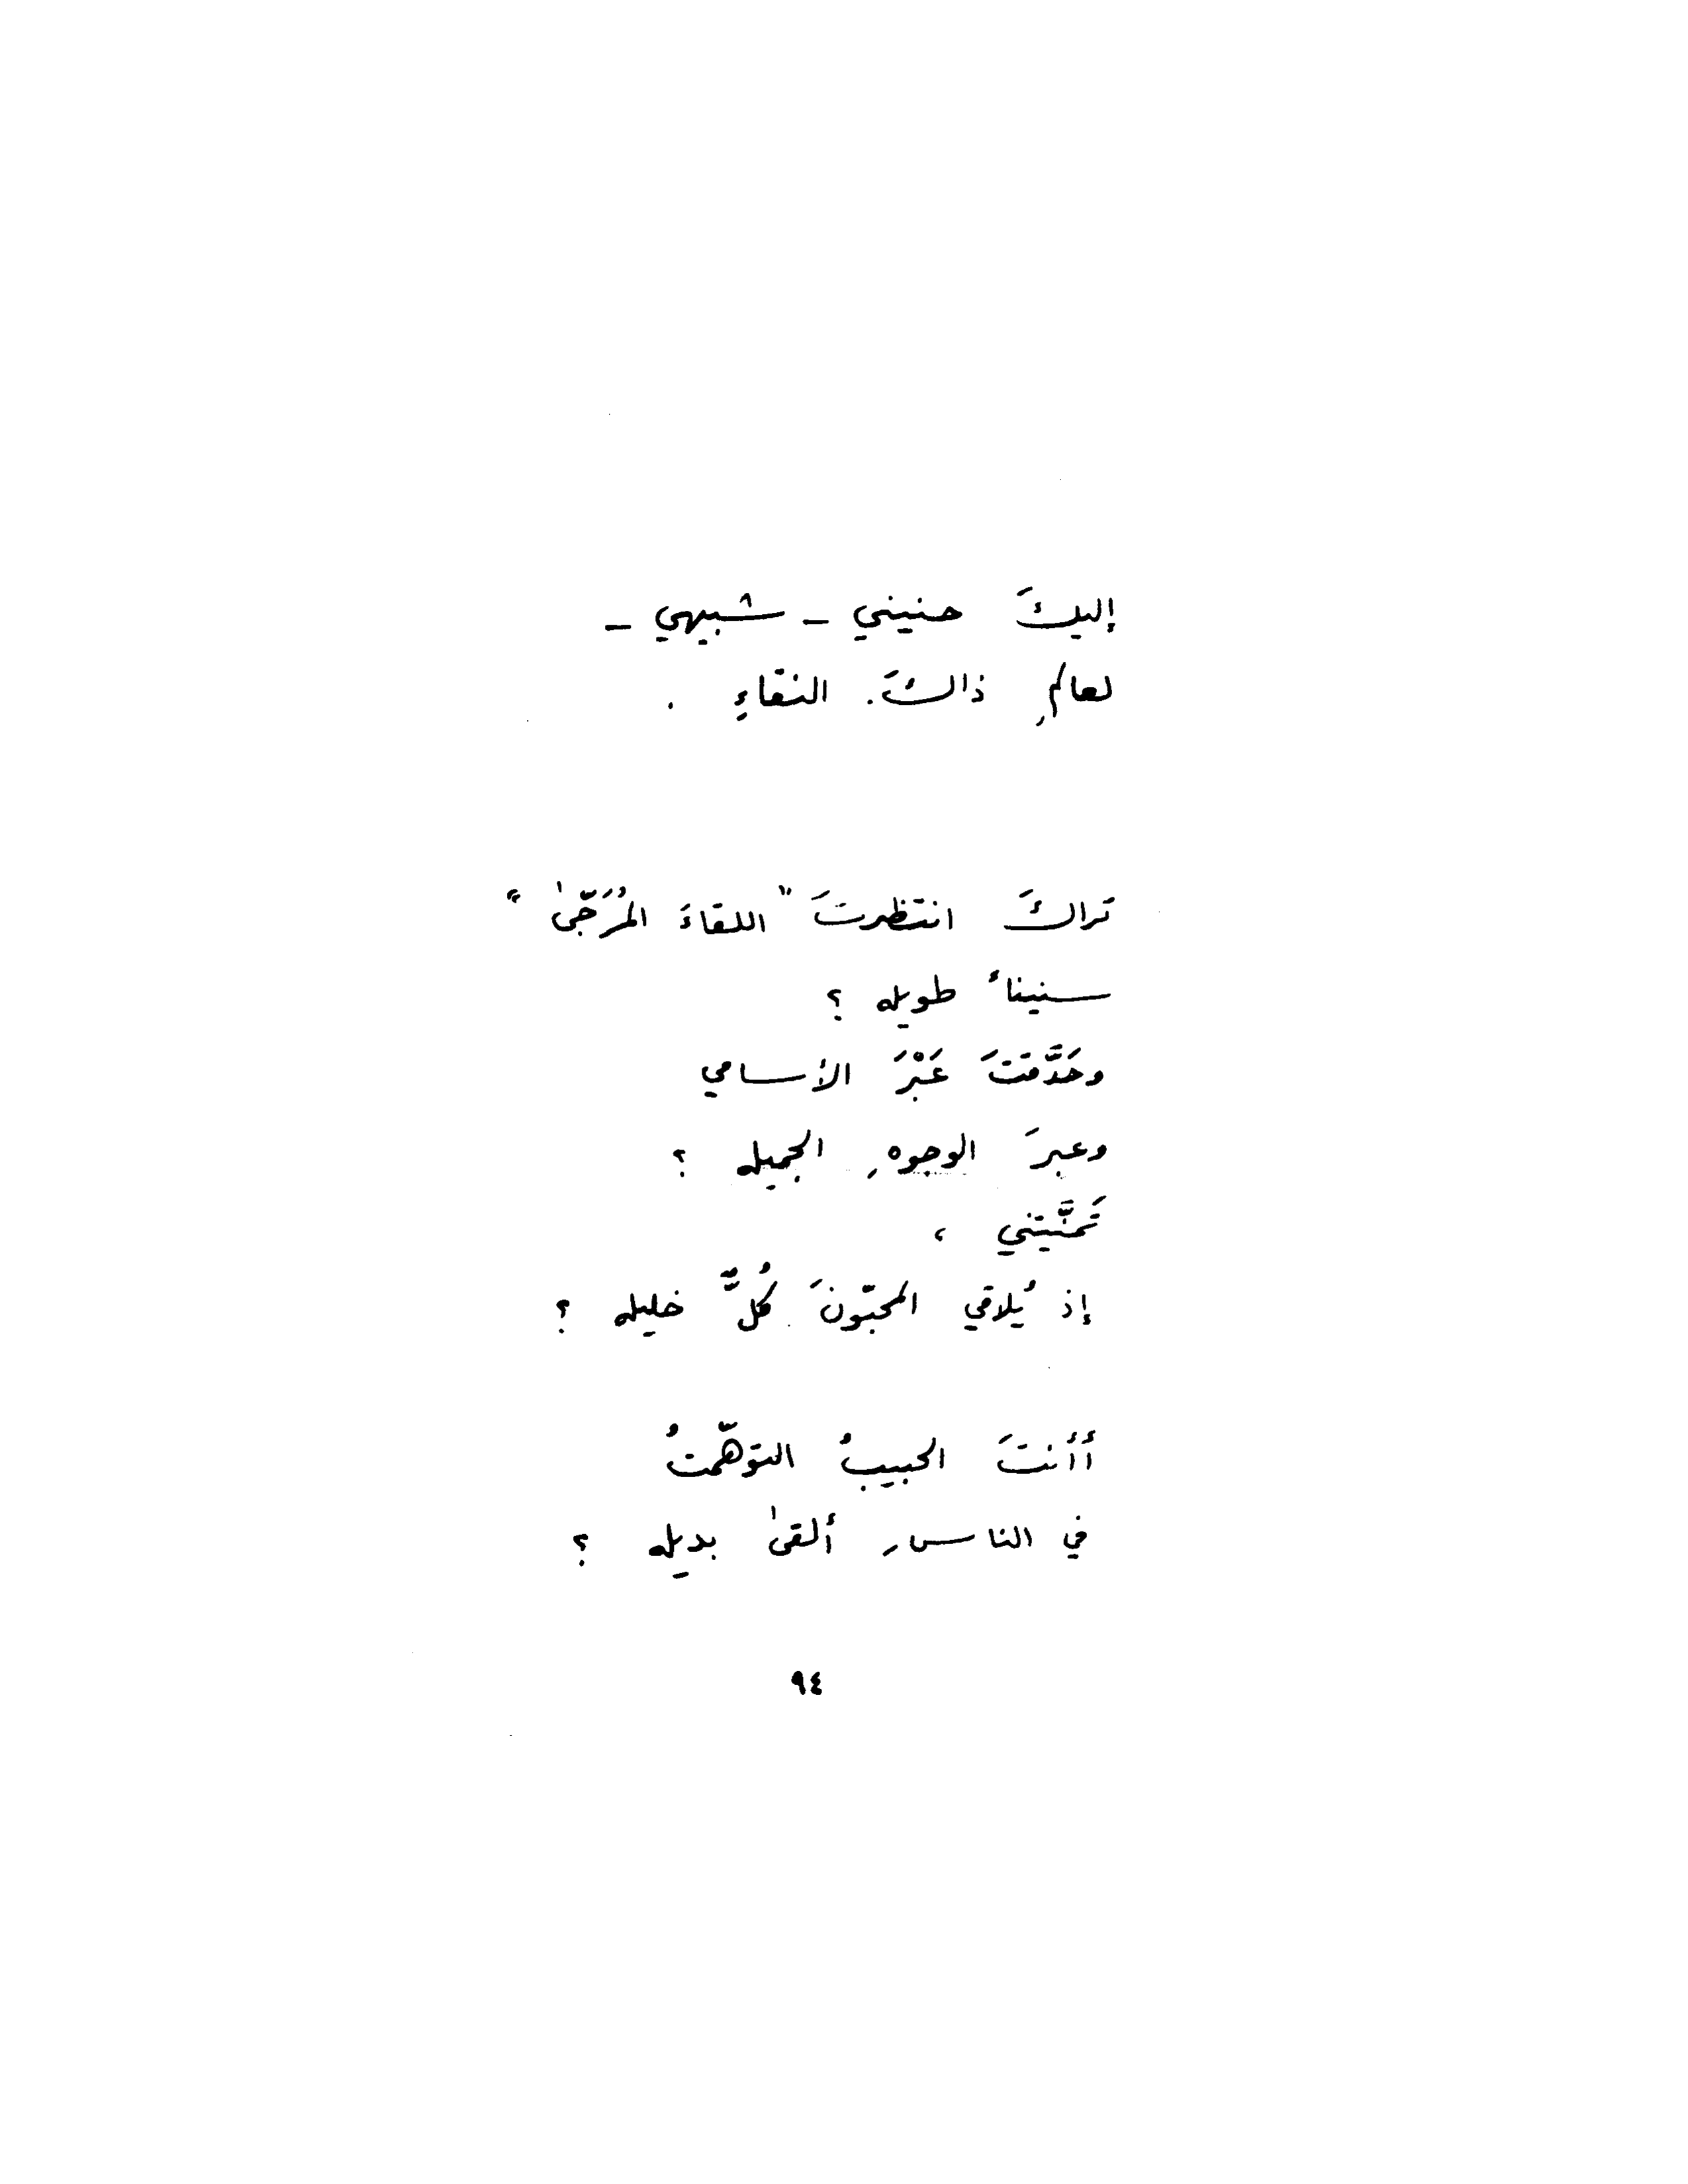 إليكَ حنيني _ شبيهي _
لعالمِ ذاكَ. النقاءِ .
تراكَ انتظرتَ " اللقاءَ المُرَجّىٰ "
سنيناً طويله ؟
وحَدَّقتَ عَبْرَ الأسامي
وعبرَ الوجوهِ الجميله ؟
تَمنَّيتني ،
إذ يُلاقي المحبّونَ كُلَّ خليله ؟
أأنتَ الحبيبُ التوهّمتُ
في الناسِ ألقىٰ بديله ؟
٩٤